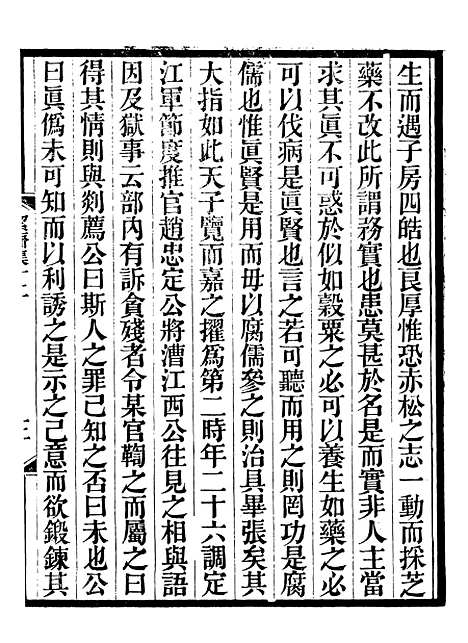 生而遇子房四皓也良厚惟恐赤松之志一動而採芝
藥不改此所謂務實也患莫甚於名是而實非人主當
求其眞不可惑於似如穀粟之必可以養生如藥之必
可以伐病是眞賢也言之若可聽而用之則罔功是腐
儒也惟眞賢是用而毋以腐儒參之則治具畢張矣其
大指如此天子覽而嘉之擢爲第二時年二十六調定
江軍節度推官趙忠定公將漕江西公往見之相與語
因及獄事云部內有訴貪殘者令某官鞫之而屬之曰
得其情則與剡薦公曰斯人之罪已知之否曰未也公
曰眞僞未可知而以利誘之是示之己意而欲鍛鍊其